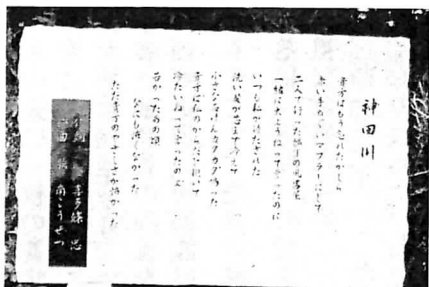 神田川
貴方はもう忘れたかしら
赤い手ぬぐいマフラーにして
二人で行った横丁の風呂屋
一緒に出ようねって言ったのに
いつも私が待たされた
洗い髪が芯まで冷えて
小さな石けんカタカタ鳴った
貴方は私のからだを抱いて
冷たいねって言ったのよ
若かったあの頃
なにも恐くなかった
ただ貴方のやさしさが恐かった
喜多條 忠
南こうせつ